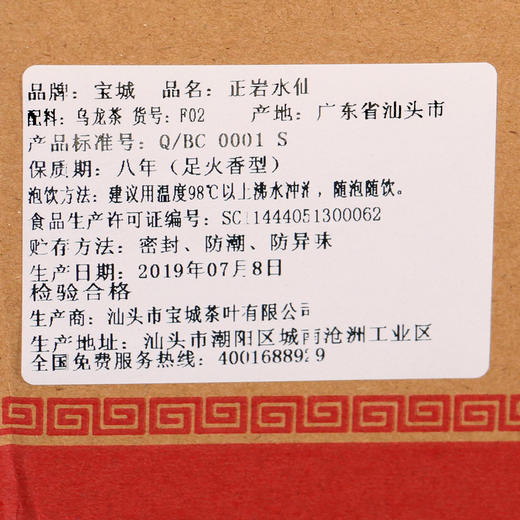 品牌：宝城 品名：正岩水仙
配料：乌龙茶 货号：F02 产地：广东省汕头市
产品标准号：Q/BC 0001 S
保质期：八年（足火香型）
泡饮方法：建议用温度98℃以上沸水冲泡，随泡随饮。
食品生产许可证编号：SC11444051300062
贮存方法：密封、防潮、防异珠
生产日期：2019年07月8日
检验合格
生产商：汕头市宝城茶叶有限公司
生产地址：汕头市潮阳区城南沧洲工业区
全国免费服务热线：4001688929